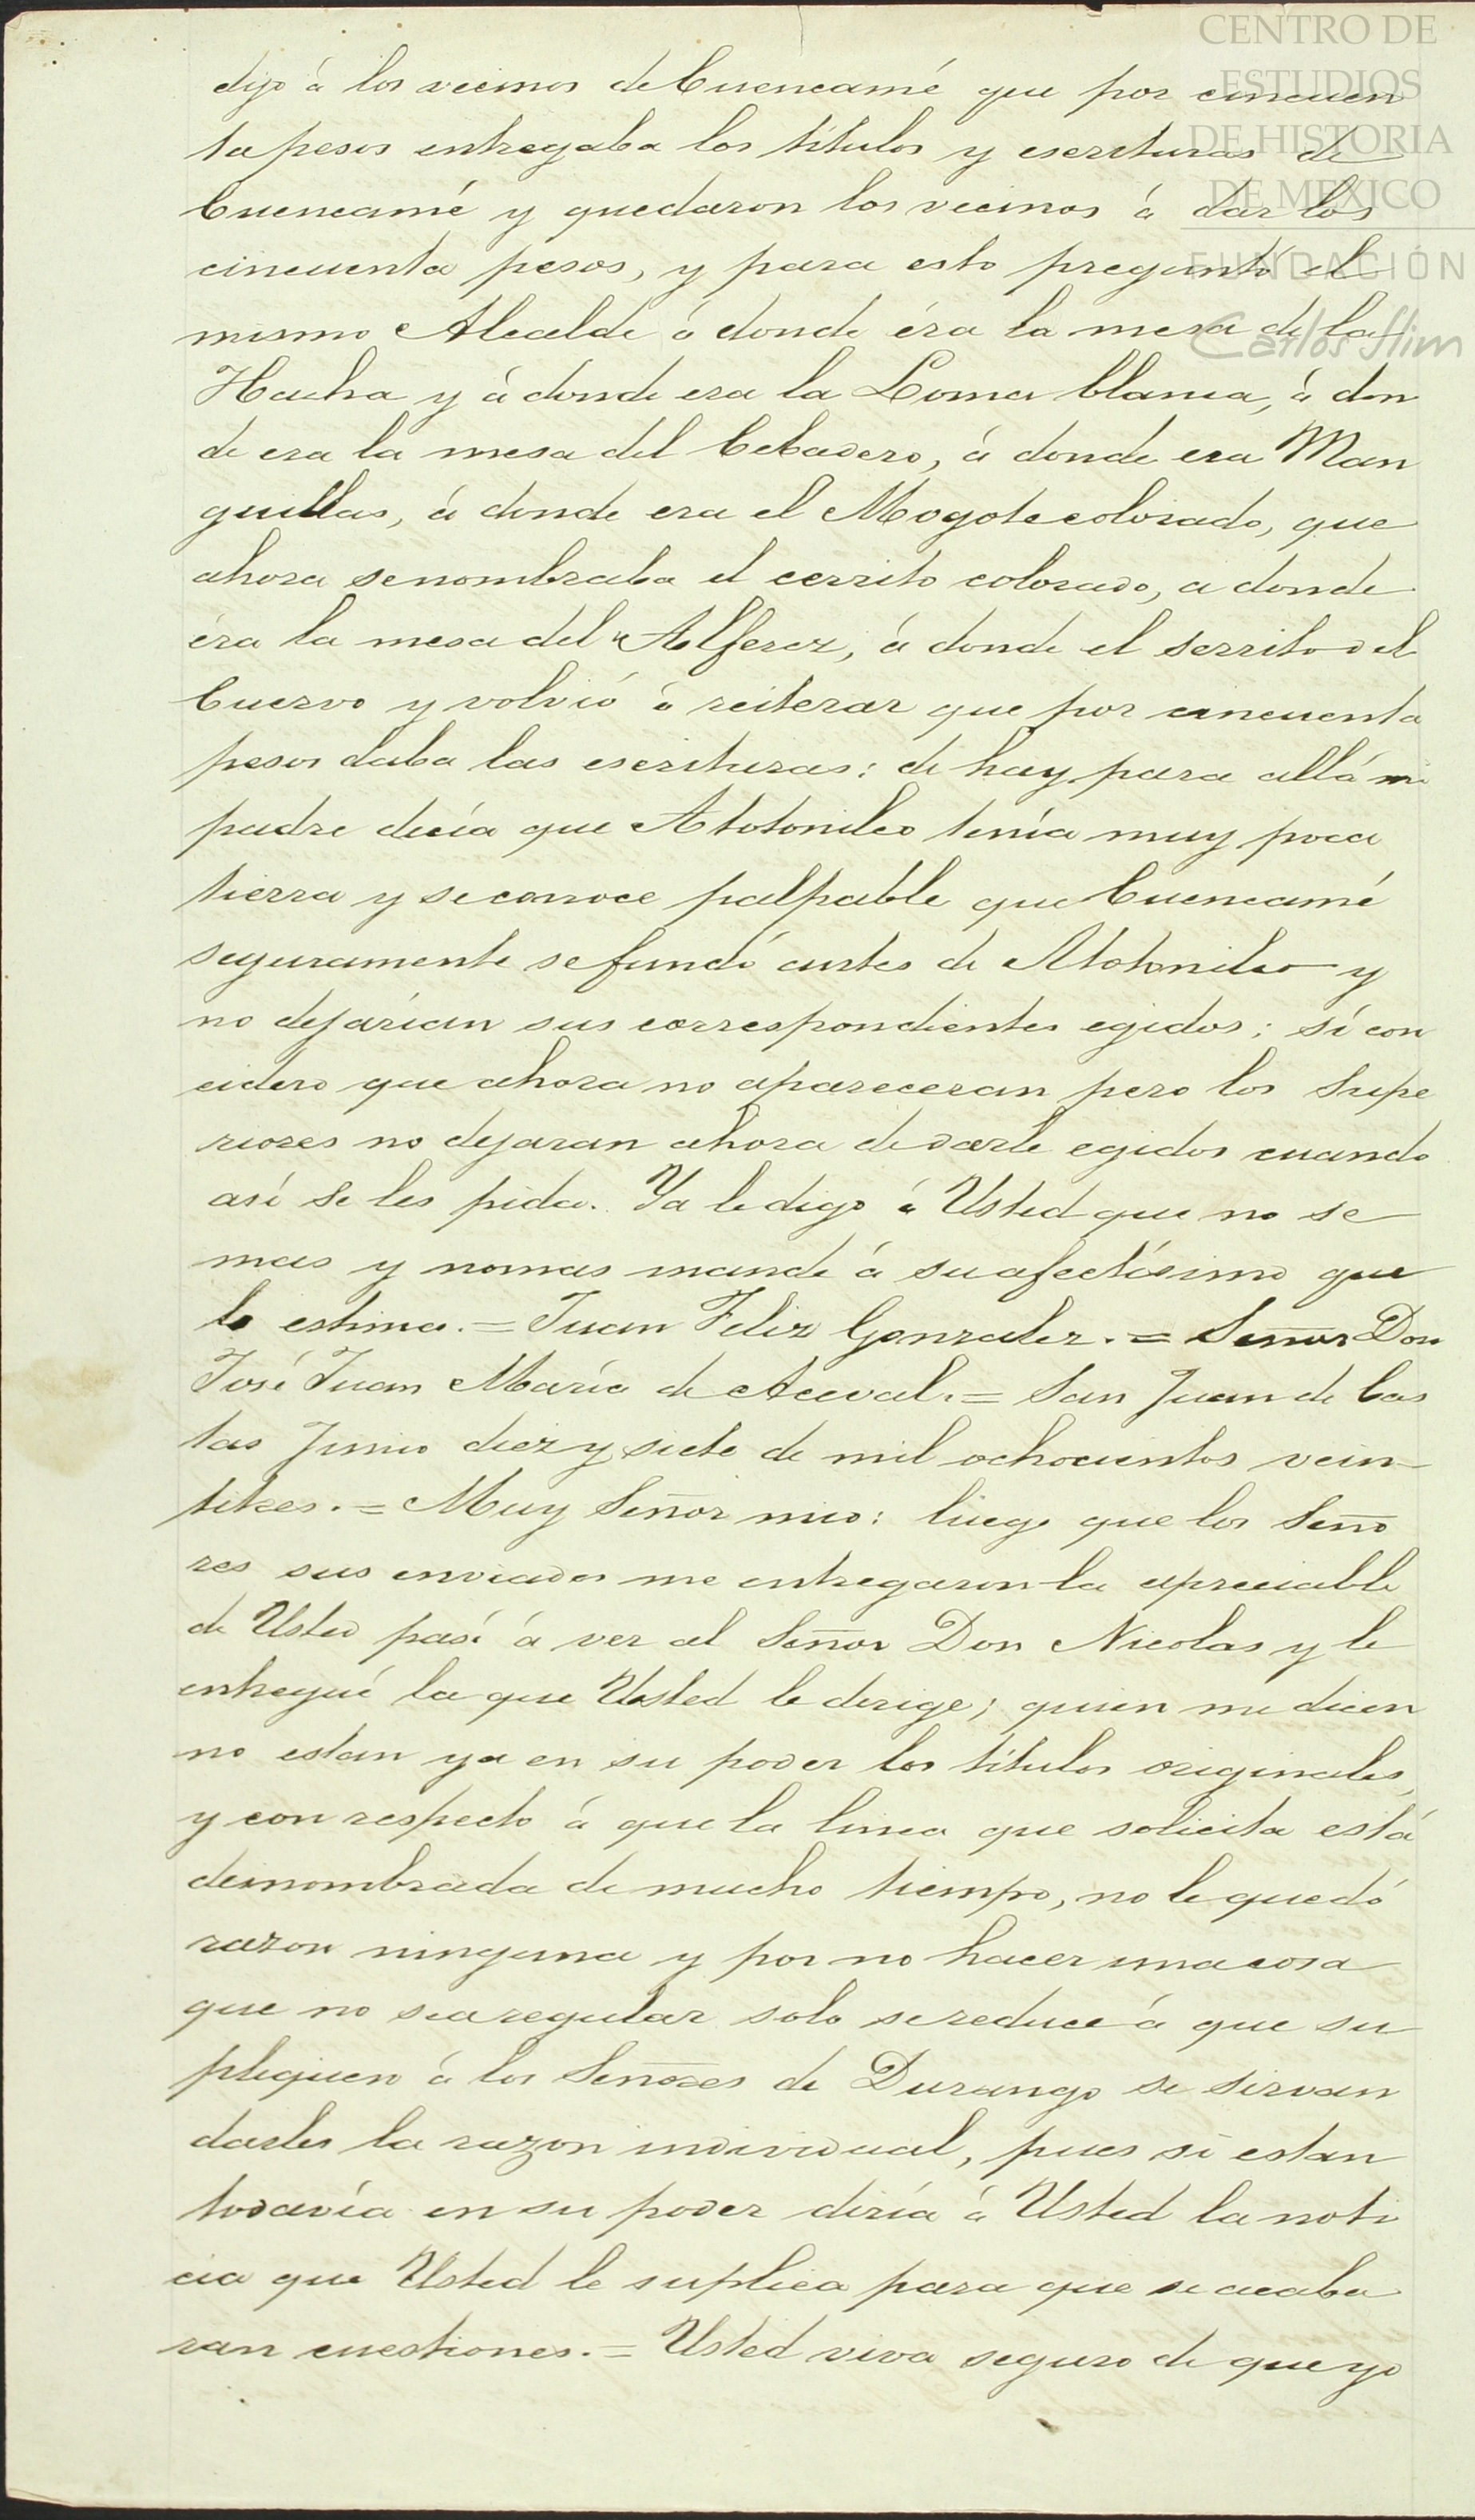 CENTRO DE
ESTUDIOS
DE HISTORIA
DE MEXICO
FUNDACIÓN
Carlos Slim
dijo á los vecinos de Cuencamé que por cincuen
ta pesos entregaba los títulos y escrituras de
Cuencamé y quedaron los vecinos á dar los
cincuenta pesos, y para esto preguntó el
mismo Alcalde á donde éra la mesa de la
Hacha y á donde era la Loma blanca, á don
de era la mesa del Cebadero, á donde era Man
guillas, á donde era el Mogote colorado, que
ahora se nombraba el cerrito colorado, a donde
éra la mesa del Alferez, á donde el serrito del
Cuervo y volvió á reiterar que por cincuenta
pesos daba las escrituras: de hay para allá mi
padre decía que Atotonilco tenía muy poca
tierra y se conoce palpable que Cuencamé
seguramente se fundó antes de Atotonilco y
no dejarían sus correspondientes egidos; sí con
cidero que ahora no apareceran pero los Supe
riores no dejaran ahora de darle egidos cuando
así se les pida. Ya le digo á Usted que no se
mas y nomas mande á su afectísimo que
lo estima. = Juan Feliz Gonzalez. = Señor Don
José Juan María de Aceval. = San Juan de Cas
tas Junio diez y siete de mil ochocientos vein-
titres. = Muy Señor mio: luego que los Seño
res sus enviados me entregaron la apreciable
de Usted pasé á ver al Señor Don Nicolas y le
entregué la que Usted le derige; quien me dicen
no estan ya en su poder los títulos originales,
y con respecto á que la linea que solicita está
desnombrada de mucho tiempo, no le quedó
razon ninguna y por no hacer una cosa
que no sea regular solo se reduce á que su
pliquen á los Señores de Durango se sirvan
darles la razon individual, pues si estan
todavía en su poder diría á Usted la noti
cia que Usted le suplica para que se acaba
ran cuestiones. = Usted viva seguro de que yo